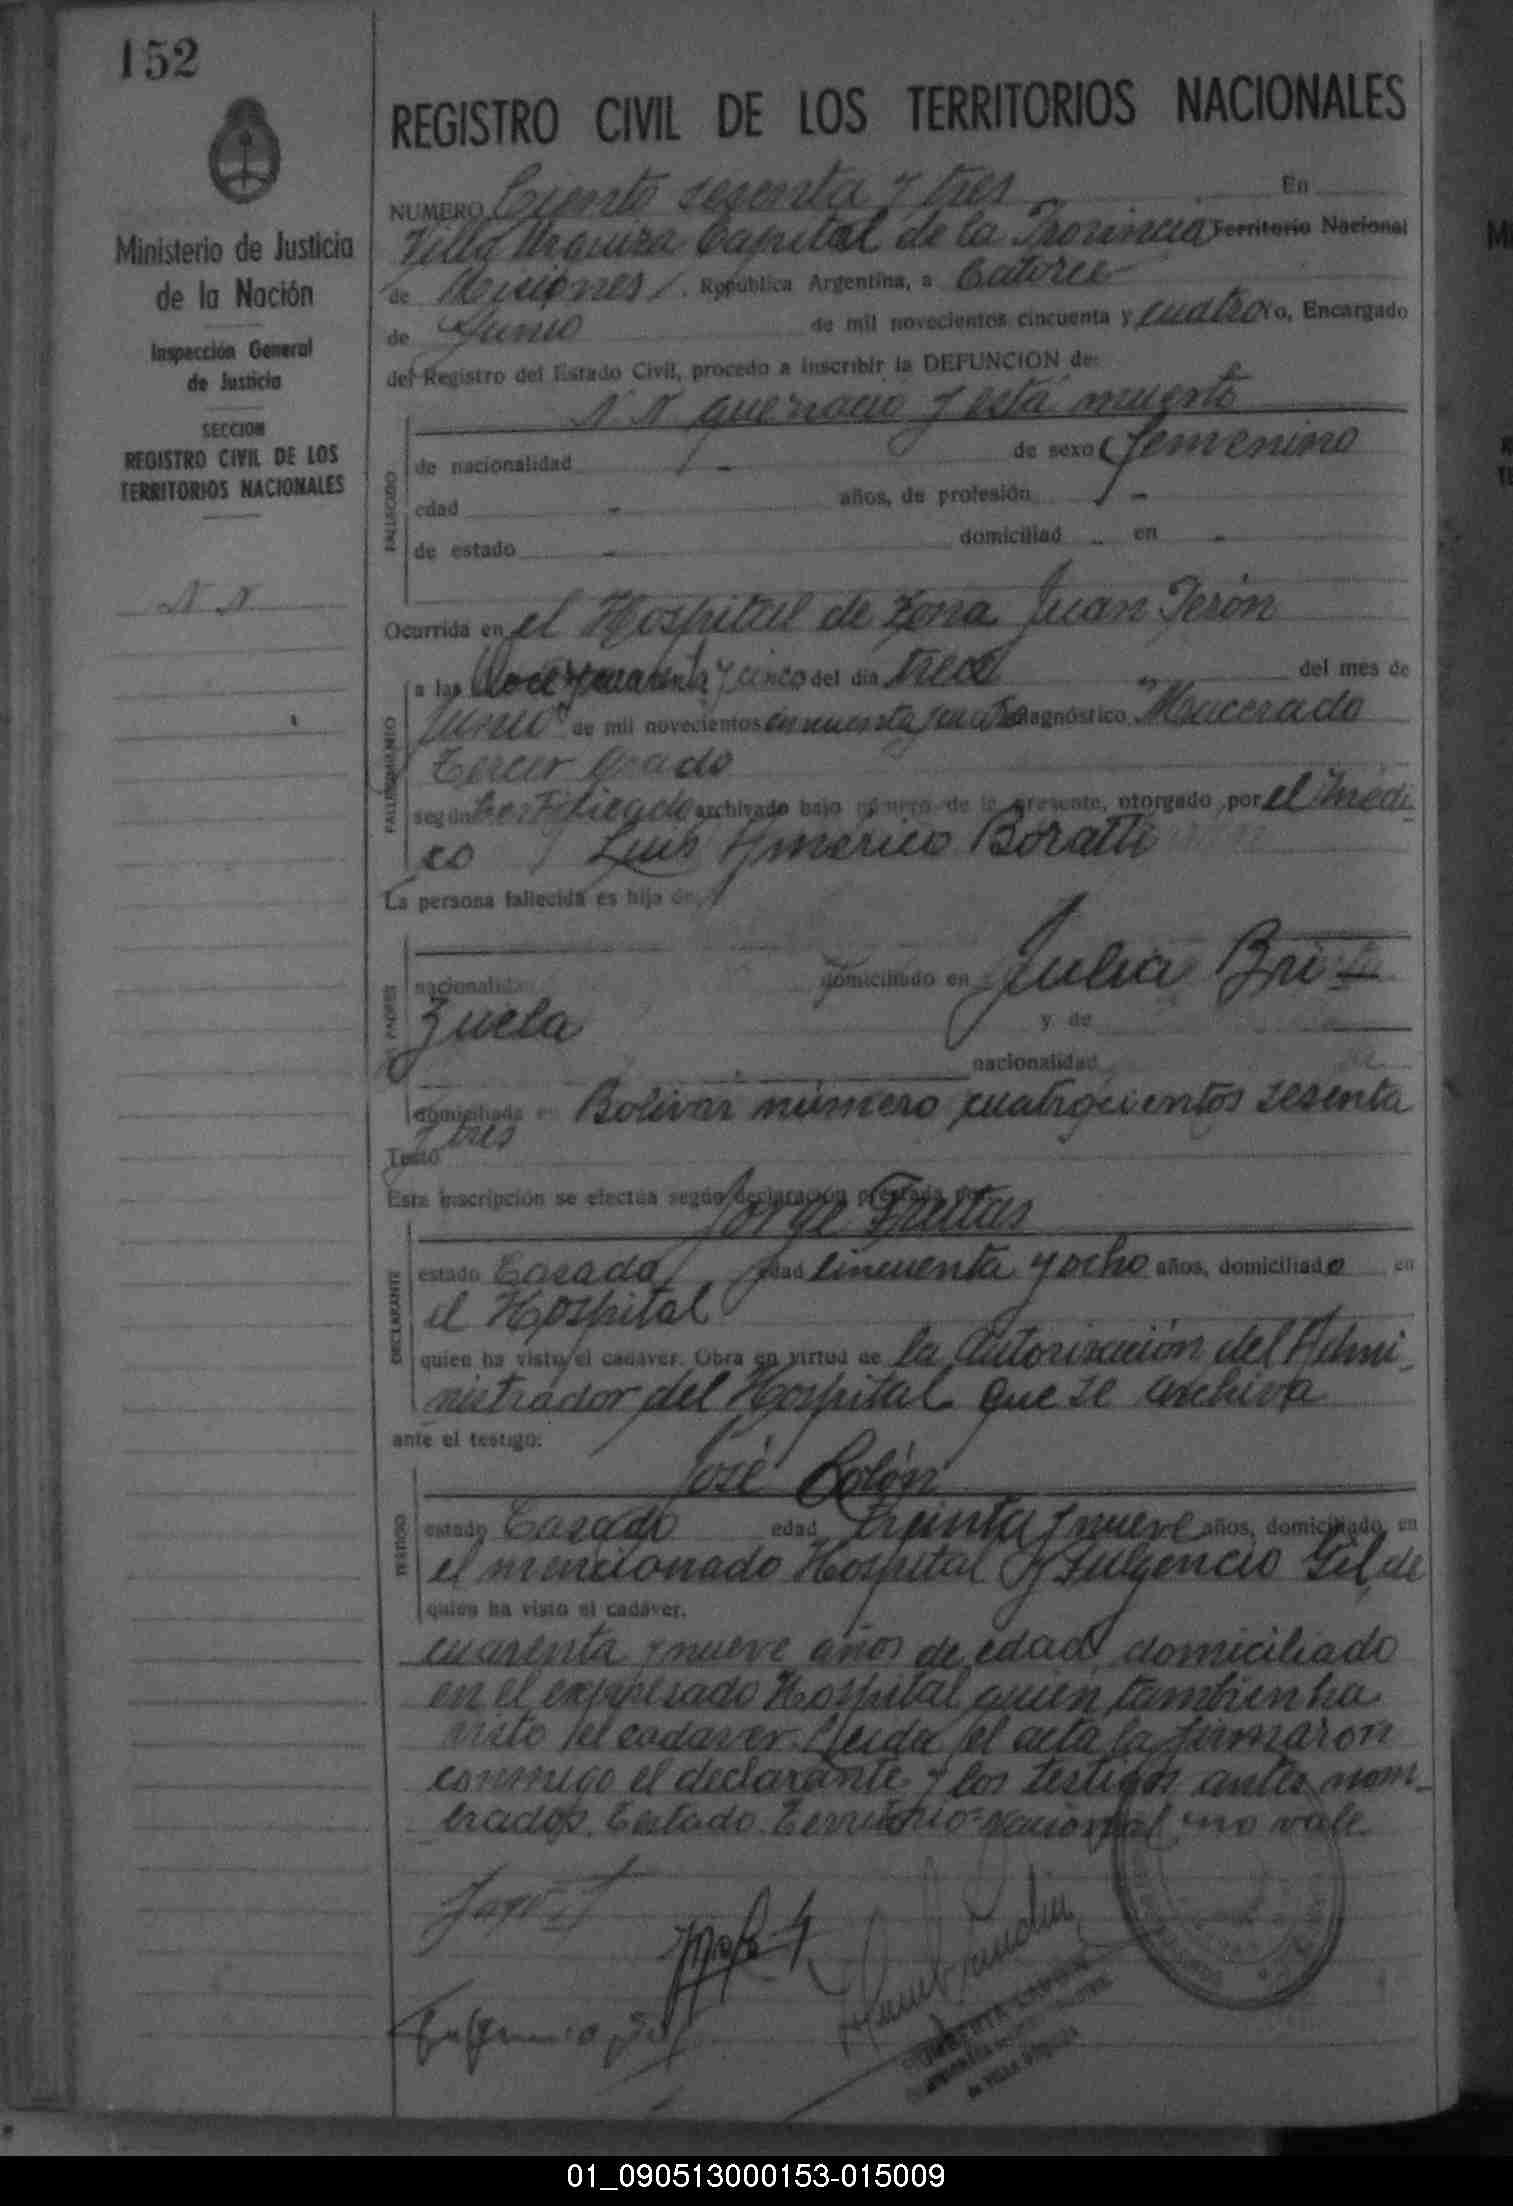 152
Ministerio de Justicia
de la Nación
Inspección General
de Justicia
SECCION
REGISTRO CIVIL DE LOS
TERRITORIOS NACIONALES
N N
REGISTRO CIVIL DE LOS TERRITORIOS NACIONALES
NUMERO Ciento sesenta y tres En
Villa Urquiza Capital de la Provincia Territorio Nacional
de Misiones, República Argentina, a Catorce
de Junio de mil novecientos cincuenta y cuatro Yo, Encargado
del Registro del Estado Civil, procedo a inscribir la DEFUNCION de:
N N que nació y está muerto
de nacionalidad - de sexo femenino
FALLECIDO
edad - años, de profesión -
de estado - domiciliad - en -
Ocurrida en el Hospital de Zona Juan Perón
a las doce y cuarenta y cinco del día trece del mes de
FALLECIMIENTO
Junio de mil novecientos cincuenta y cuatro diagnóstico "Macerado
tercer grado
según Certificado archivado bajo número de la presente, otorgado por el Médi-
co Luis Américo Boratti
La persona fallecida es hija de
PADRES
nacionalidad domiciliado en Julia Bri-
zuela y de
nacionalidad
domiciliada en Bolivar número cuatrocientos sesenta
y tres
Testó
Esta inscripción se efectúa según declaración prestada por:
Jorge Freitas
DECLARANTE
estado Casado edad cincuenta y ocho años, domiciliado en
el Hospital
quien ha visto el cadáver. Obra en virtud de la autorización del Admi-
nistrador del Hospital que se archiva
ante el testigo:
José Colón
TESTIGO
estado Casado edad treinta y nueve años, domiciliado en
el mencionado Hospital y Fulgencio Gil de
quien ha visto el cadáver.
cuarenta y nueve años de edad domiciliado
en el expresado Hospital quien tambien ha
visto el cadaver. Leida el acta la firmaron
conmigo el declarante y los testigos antes nom-
brados. Testado Territorio Nacional no vale.
01_090513000153-015009